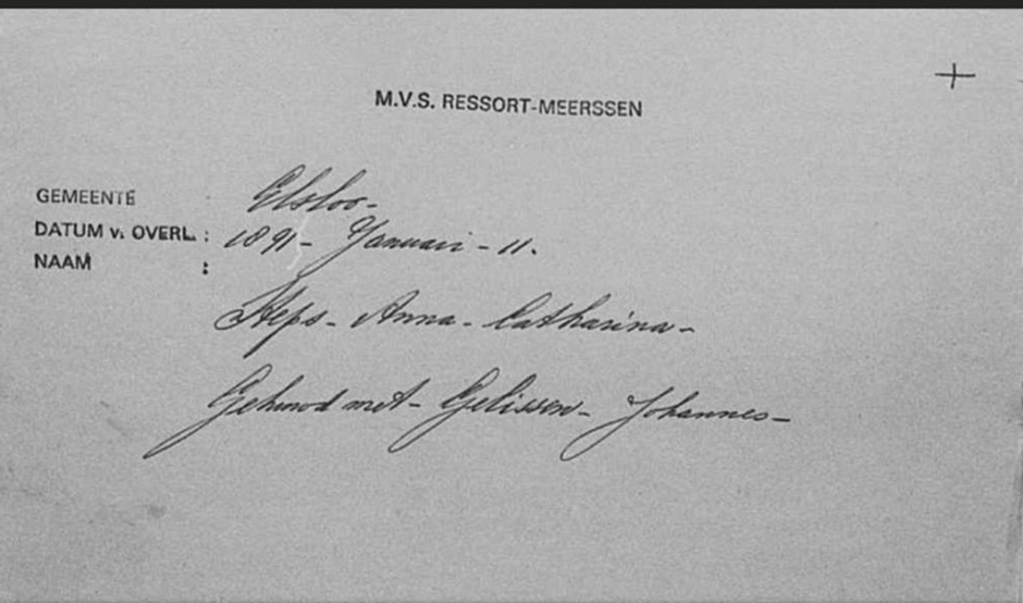 +
M.V.S. RESSORT-MEERSSEN
GEMEENTE : Elsloo-
DATUM v. OVERL. : 1891- Januari - 11.
NAAM :
Heps- Anna- Catharina-
Gehuwd met- Gelissen- Johannes-